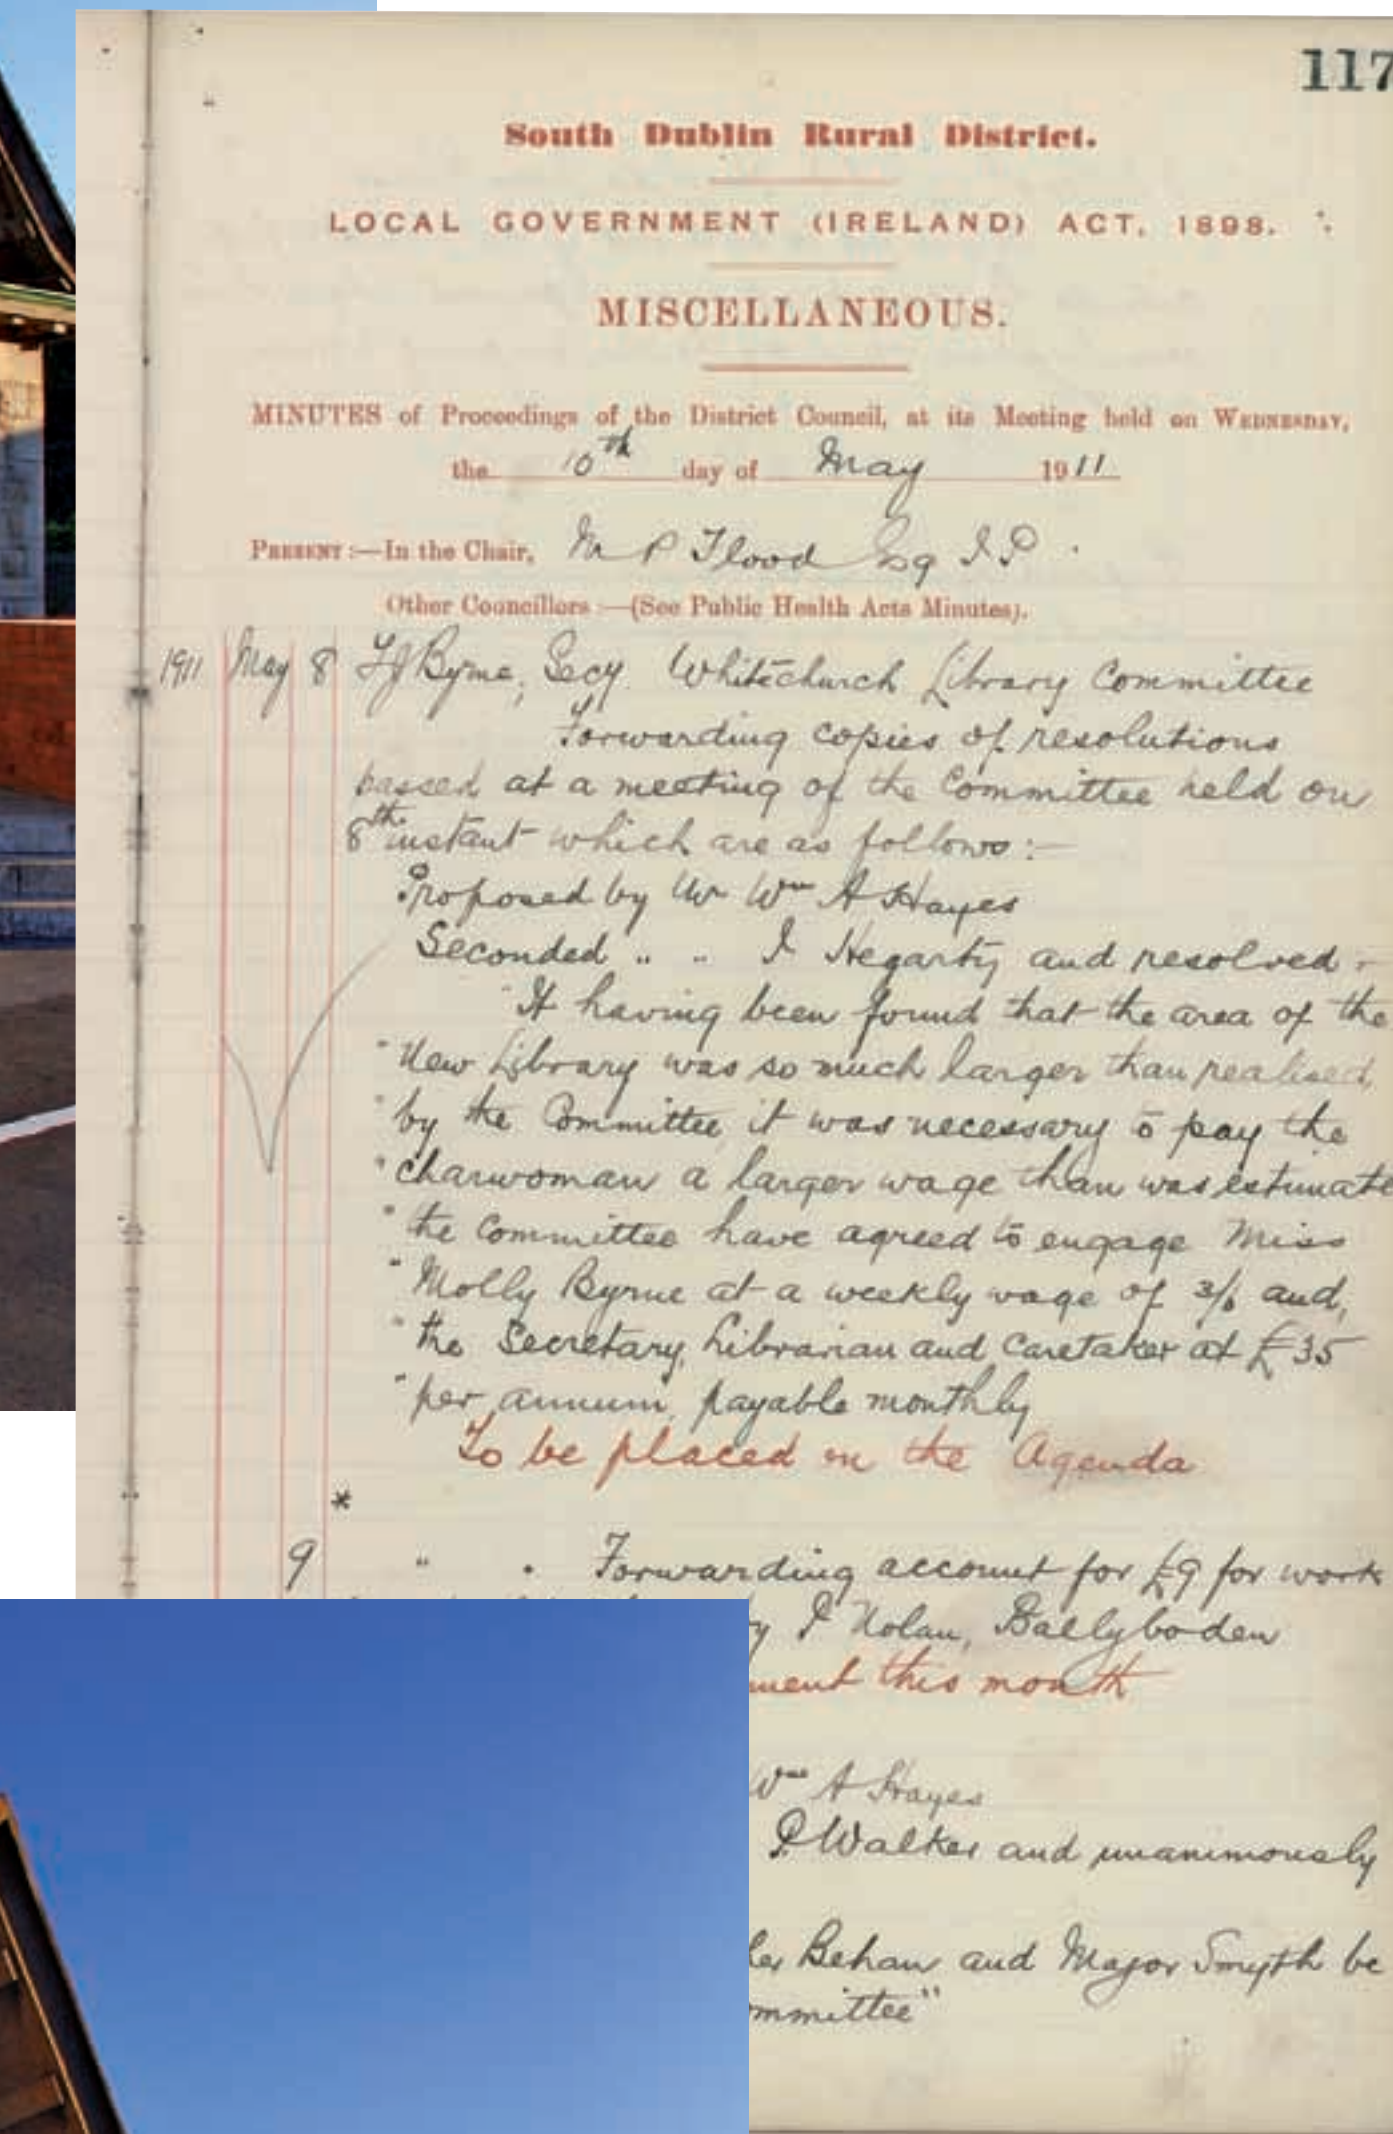 117
South Dublin Rural District.
LOCAL GOVERNMENT (IRELAND) ACT, 1898.
MISCELLANEOUS.
MINUTES of Proceedings of the District Council, at its Meeting held on WEDNESDAY,
the 10th day of May 1911
PRESENT:—In the Chair, M P Flood Esq J.P.
Other Councillors:—(See Public Health Acts Minutes).
1911 May 8 Byrne, Secy. Whitechurch Library Committee
Forwarding copies of resolutions
passed at a meeting of the Committee held on
8th instant which are as follows:—
Proposed by Mr Wm A Hayes
Seconded " " J Hegarty and resolved -
"It having been found that the area of the
"New Library was so much larger than realised
"by the Committee it was necessary to pay the
"charwoman a larger wage than was estimate
"the Committee have agreed to engage Miss
"Molly Byrne at a weekly wage of 3/6 and
"the Secretary, Librarian and Caretaker at £35
"per annum, payable monthly
To be placed on the Agenda
*
9 " " Forwarding account for £9 for work
y P Nolan, Ballyboden
ment this month
Wm A Hayes
P. Walker and unanimously
les Behan and Major Smyth be
mmittee"